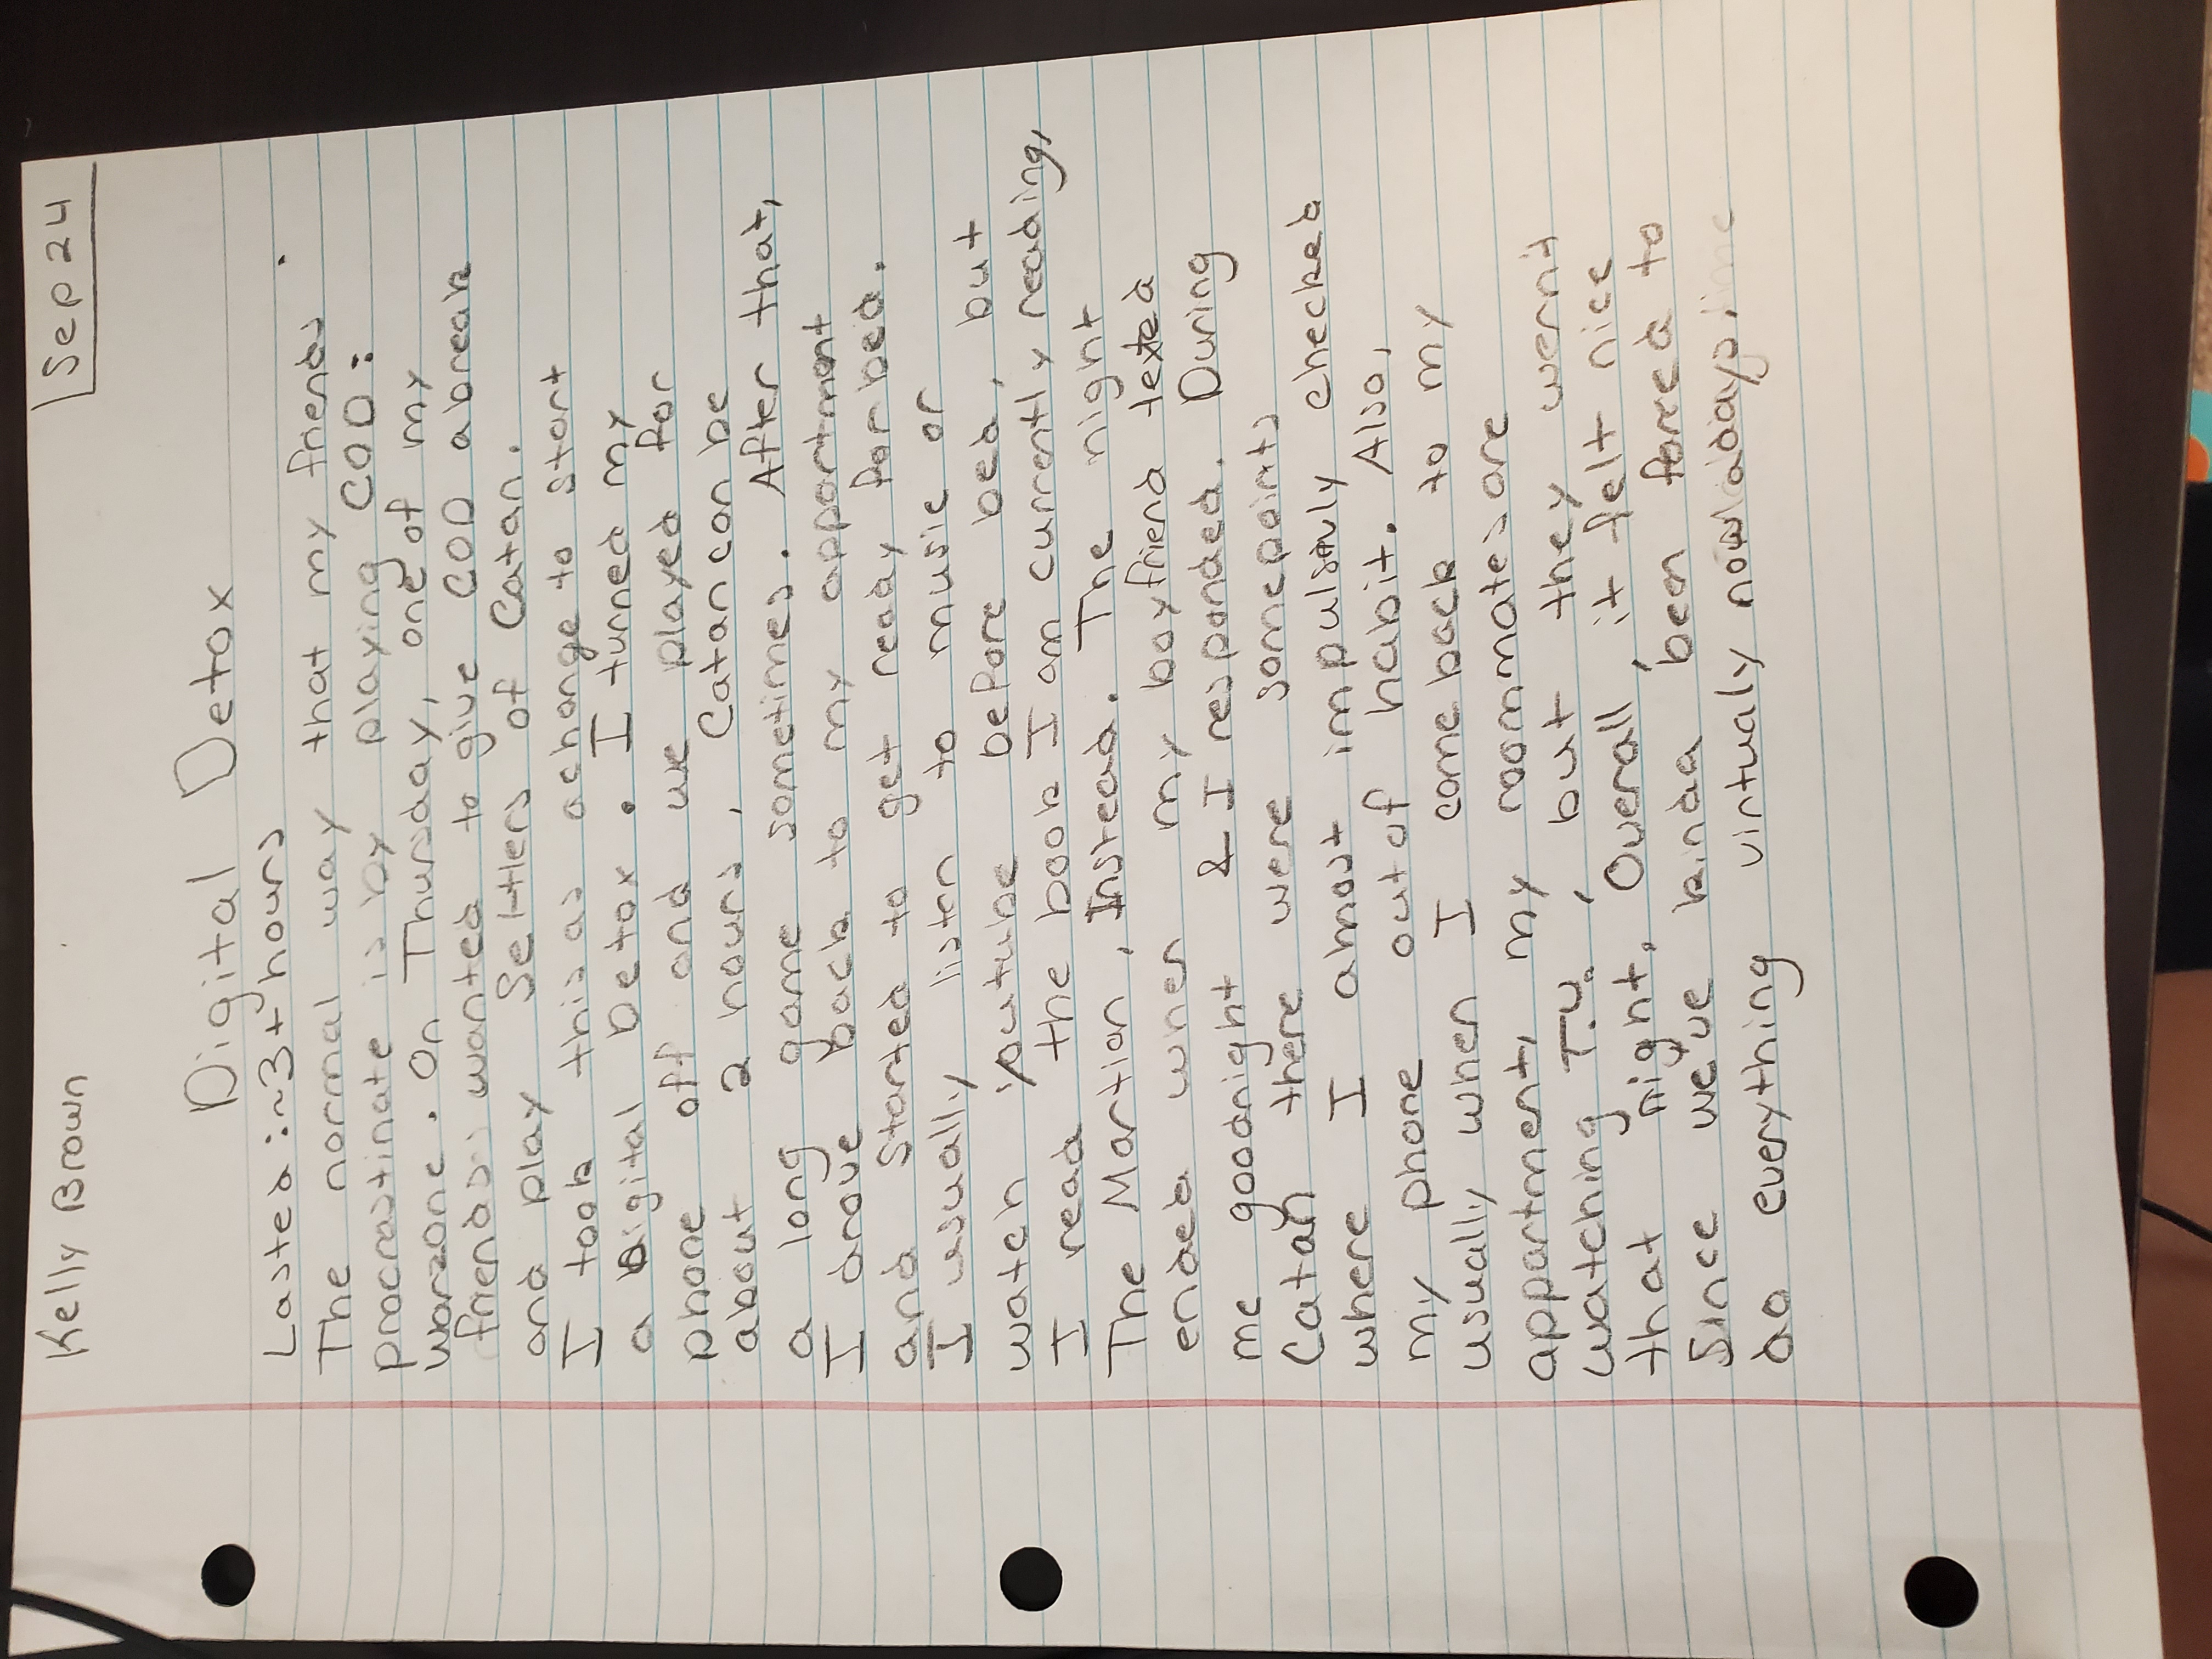 Kelly Brown
Sep 24
Digital Detox
Lasted :~3+ hours
The normal way that my friends
procrastinate is by playing COD:
warzone. On Thursday, one of my
friends wanted to give COD a break
and play Settlers of Catan.
I took this as a change to start
a Digital Detox. I turned my
phone off and we played for
about 2 hours, Catan can be
a long game sometimes. After that,
I drove back to my appartment
and started to get ready for bed.
I usually listen to music or
watch youtube before bed, but
I read the book I am currently reading,
The Martian, Instead. The night
ended when my boyfriend texted
me goodnight & I responded. During
Catan there were some points
where I almost impulsivly checked
my phone out of habit. Also,
usually when I come back to my
appartment, my roommates are
watching T.V., but they wern't
that night. Overall, it felt nice
Since we've kinda been forced to
do everything virtualy now adays.